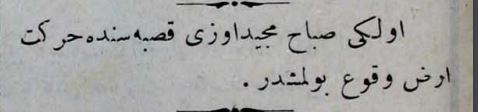 اولكى صباح مجيداوزى قصبه‌سنده حركت
ارض وقوع بولمشدر .